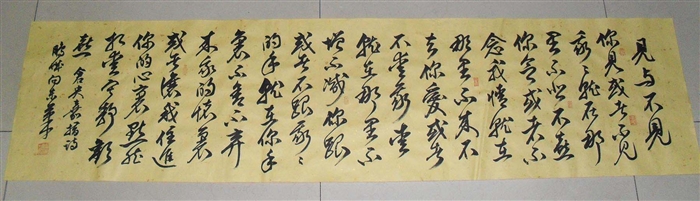 见与不见
你见或者不见
我我就在那
里不悲不喜
你念或者不
念我情就在
那里不来不
去你爱或者
不爱我爱
就在那里不
增不减你跟
或者不跟我我
的手就在你手
里不舍不弃
来我的怀里
或者让我住进
你的心里默然
相爱寂静欢
喜 仓央嘉措诗